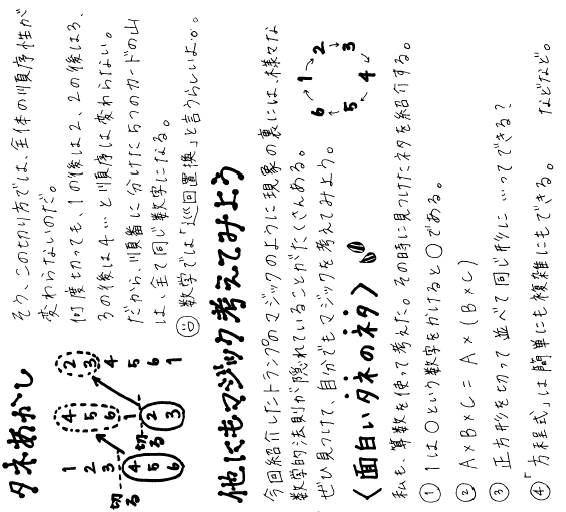 タネあかし
1
2
3
切る
4
5
6
4
5
6
1
切る
2
3
2
3
4
5
6
1
そう、この切り方では、全体の順序性が
変わらないのだ。
何度切っても、1の後は2、2の後は3、
3の後は4…と順序は変わらない。
だから、順番に分けた6つのカードの山
は、全て同じ数字になる。
数学では「巡回置換」と言うらしいよ。
他にもマジック考えてみよう
今回紹介したトランプのマジックのように現象の裏には、様々な
数学的法則が隠れていることがたくさんある。
ぜひ見つけて、自分でもマジックを考えてみよう。
1 2 3 4 5 6
〈面白いタネのネタ〉
私も、算数を使って考えた。その時に見つけたネタを紹介する。
① 1は〇という数字をかけると〇である。
② A×B×C=A×(B×C)
③ 正方形を切って並べて同じ形に…ってできる?
④「方程式」は簡単にも複雑にもできる。 などなど。